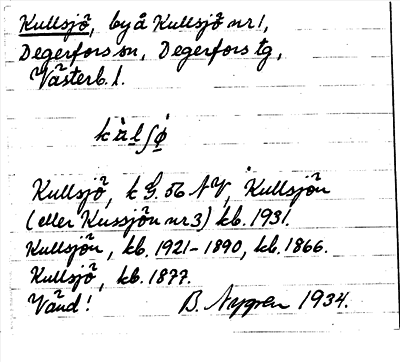 Kullsjö, by å Kullsjö nr 1,
Degerfors sn, Degerfors tg,
Västerb. l.
Kullsjö, k G. 56 NV, Kullsjön
(eller Kussjön nr 3) kb. 1931.
Kullsjön, kb. 1921-1890, kb. 1866.
Kullsjö, kb. 1877.
Vänd! B. Nygren 1934.